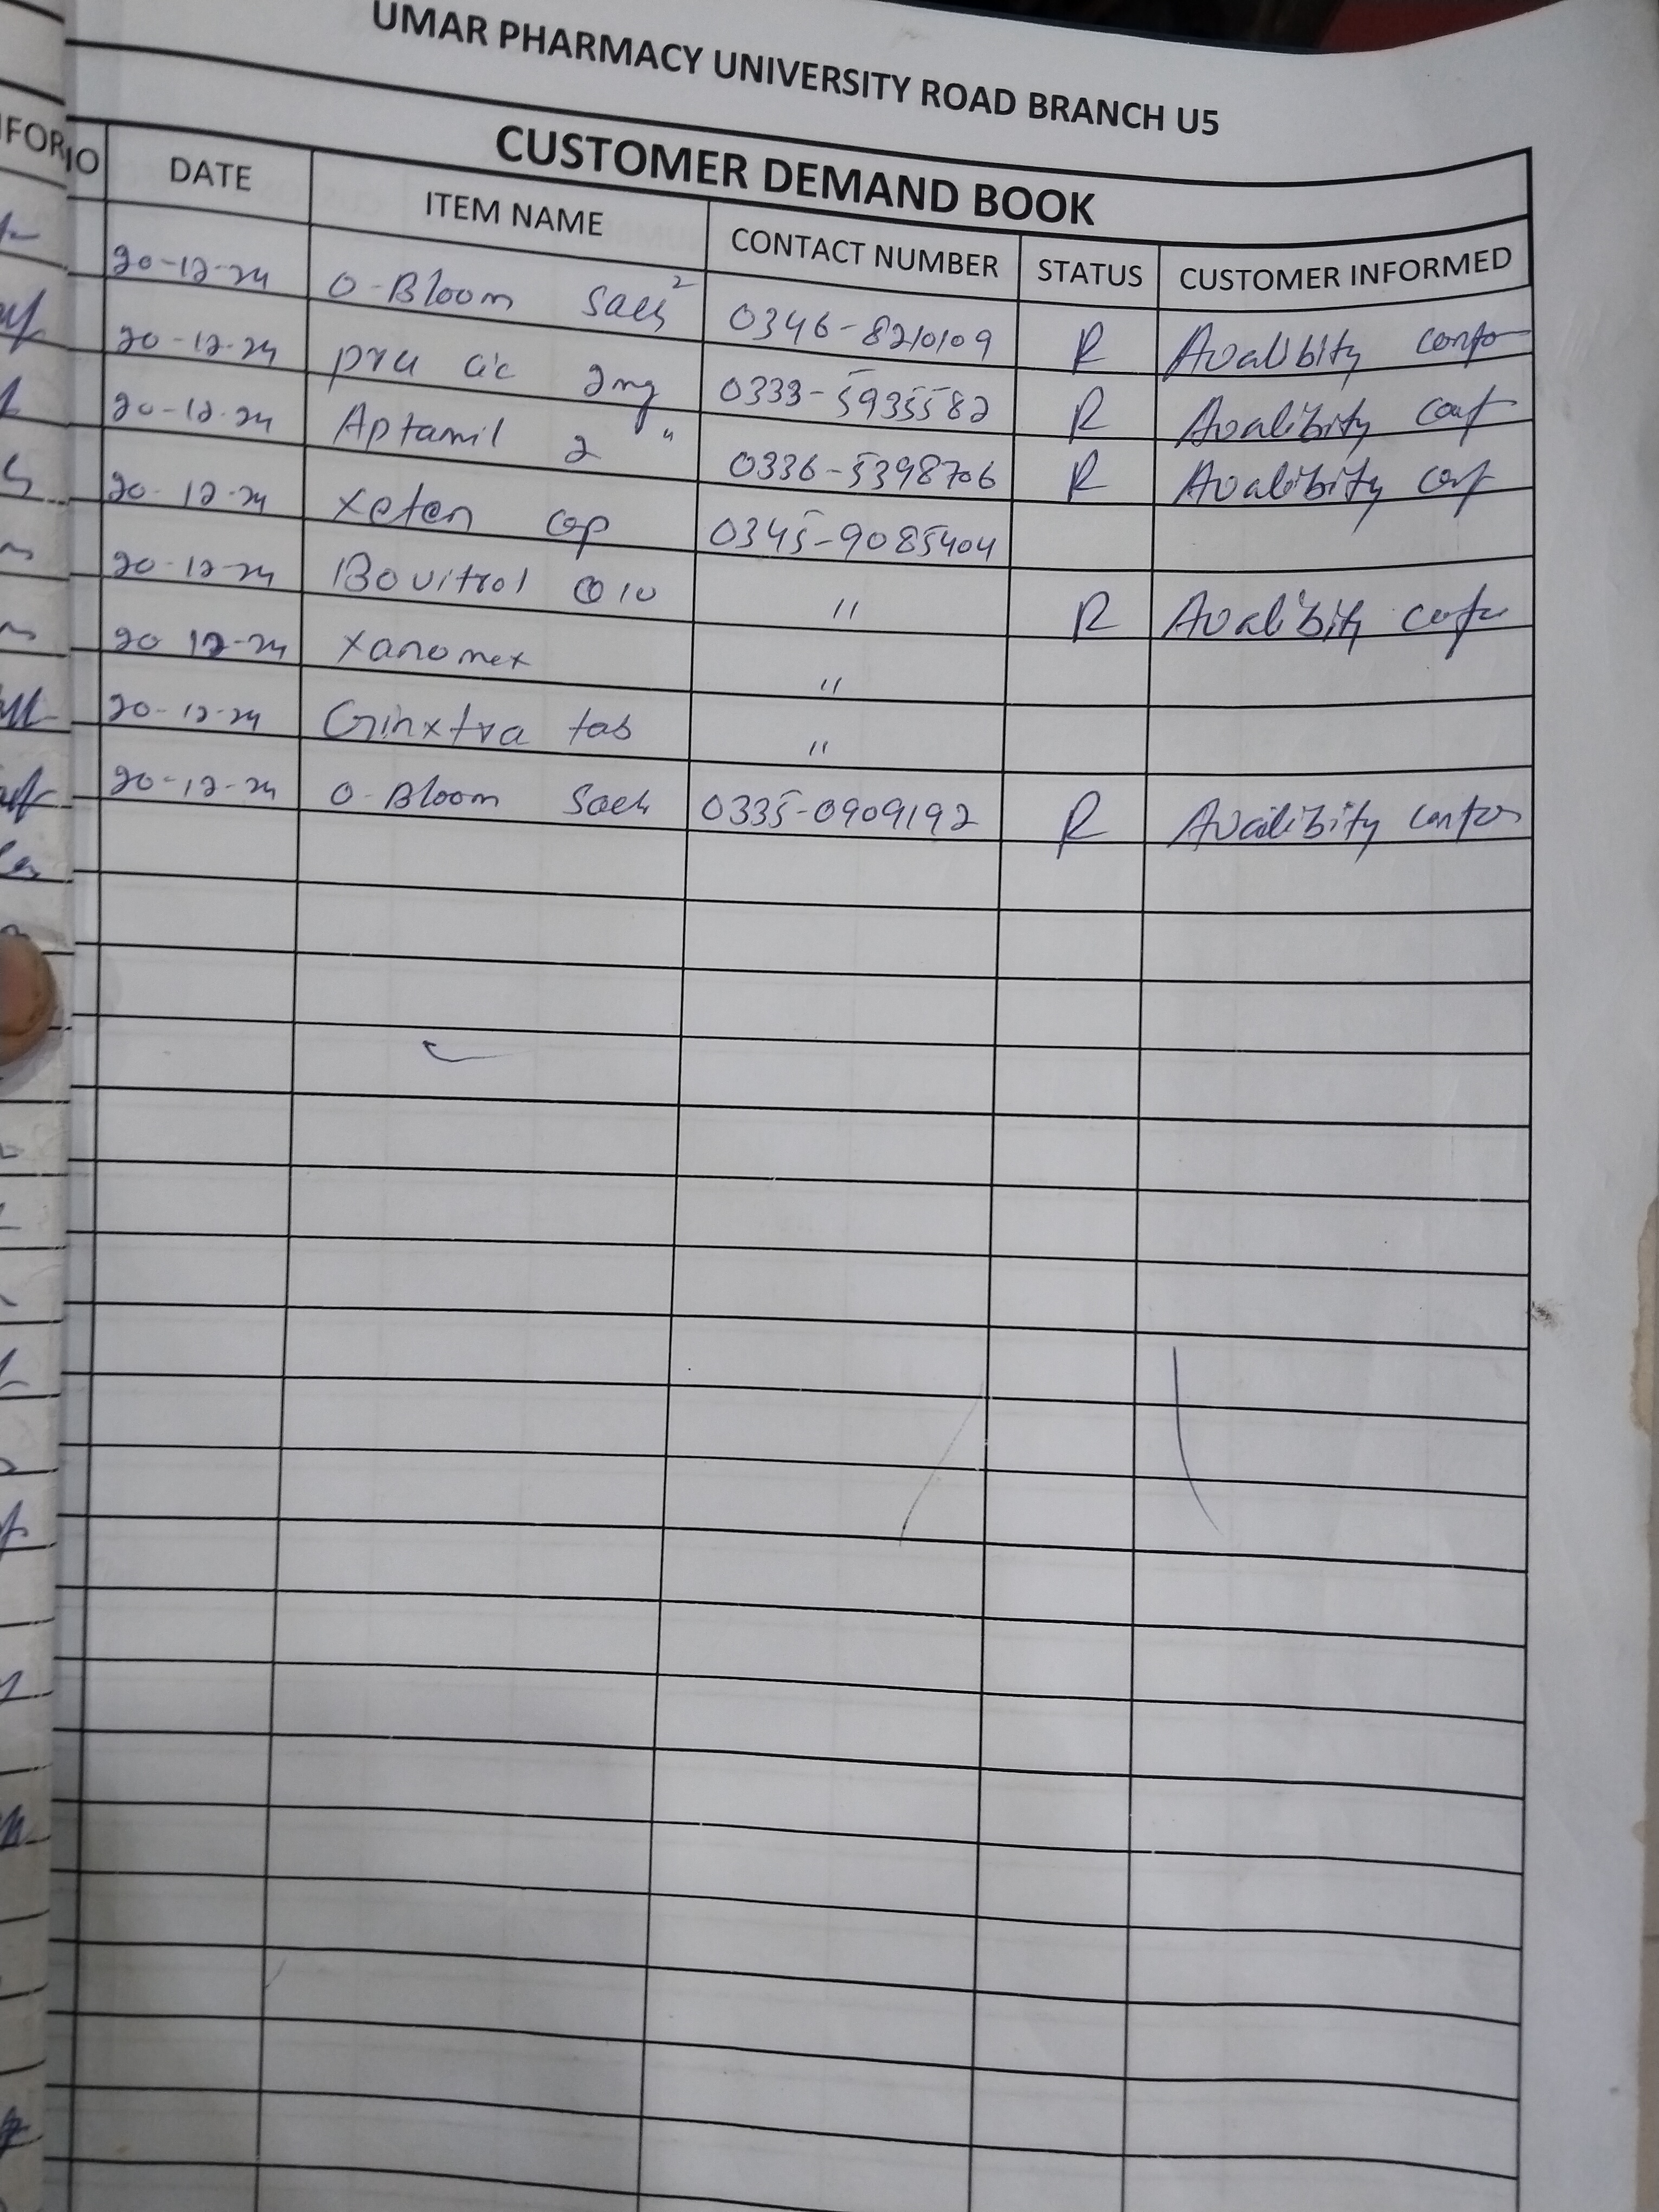 UMAR PHARMACY UNIVERSITY ROAD BRANCH U5
CUSTOMER DEMAND BOOK
DATE ITEM NAME CONTACT NUMBER STATUS CUSTOMER INFORMED
20-12-24 O-Bloom Sach 2 0346-8210109 R Avalibity
20-12-24 2mg 0333-5935582 R Avalibity
20-12-24 Aptamil 2 " 0336-5398706 R Avalibity
20-12-24 Xeten cap 0345-9085404
20-12-24 Bovitrol " R Avalibity
20-12-24 Xanomex "
20-12-24 Ginxtra tab "
20-12-24 O-Bloom Sach 0335-0909192 R Avalibity